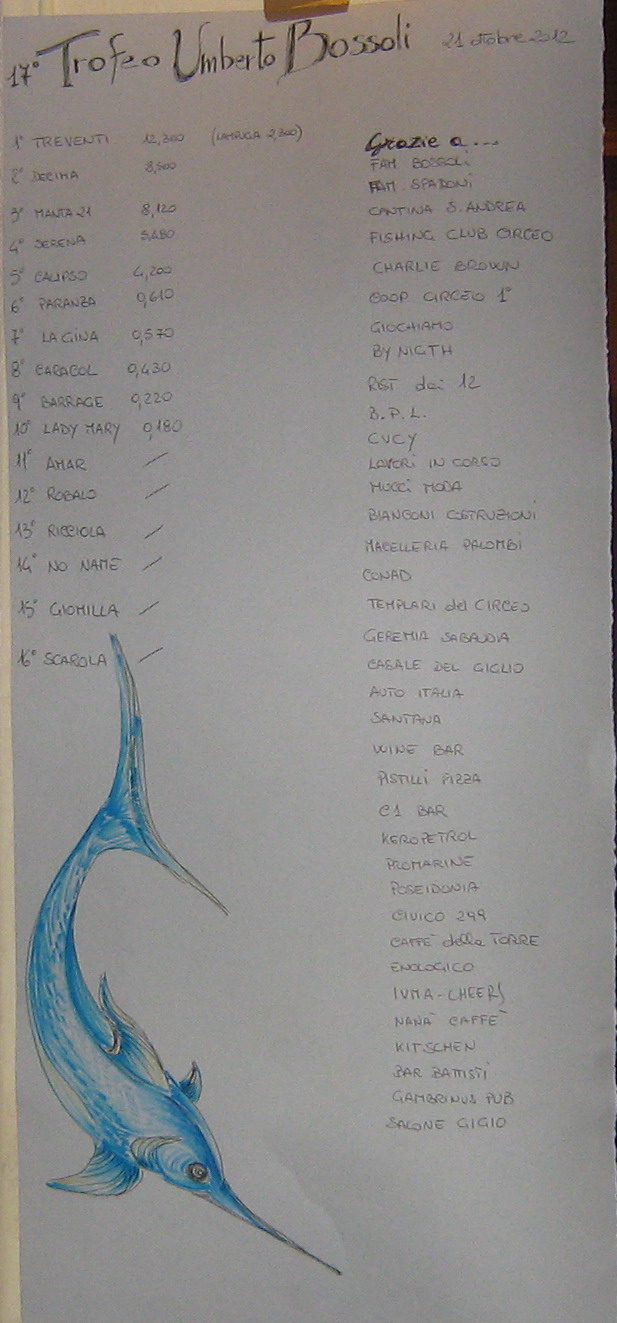 17° Trofeo Umberto Bossoli 21 ottobre 2012
1° TREVENTI 12,300 (LAMPUGA 2,300)
2° DECIMA 8,500
3° MANTA 21 8,120
4° SERENA 5,480
5° CALIPSO 4,200
6° PARANZA 0,610
7° LA GINA 0,570
8° CARACOL 0,430
9° BARRAGE 0,220
10° LADY MARY 0,180
11° AMAR /
12° ROBALO /
13° RICCIOLA /
14° NO NAME /
15° GIOMILLA /
16° SCAROLA /
Grazie a...
FAM BOSSOLI
FAM. SPADONI
CANTINA S. ANDREA
FISHING CLUB CIRCEO
CHARLIE BROWN
COOP CIRCEO 1°
GIOCHIAMO
BY NIGTH
RST dei 12
B.P.L.
CUCY
LAVORI IN CORSO
MUCCI MODA
BIANCONI COSTRUZIONI
MACELLERIA PALOMBI
CONAD
TEMPLARI del CIRCEO
GEREMIA SABAUDIA
CASALE DEL GIGLIO
AUTO ITALIA
SANTANA
WINE BAR
PISTILLI PIZZA
C1 BAR
KEROPETROL
PROMARINE
POSEIDONIA
CIVICO 299
CAFFÈ della TORRE
ENOLOGICO
IVMA-CHEERS
NANÀ CAFFÈ
KITSCHEN
BAR BATTISTI
GAMBRINUS PUB
SALONE GIGIO